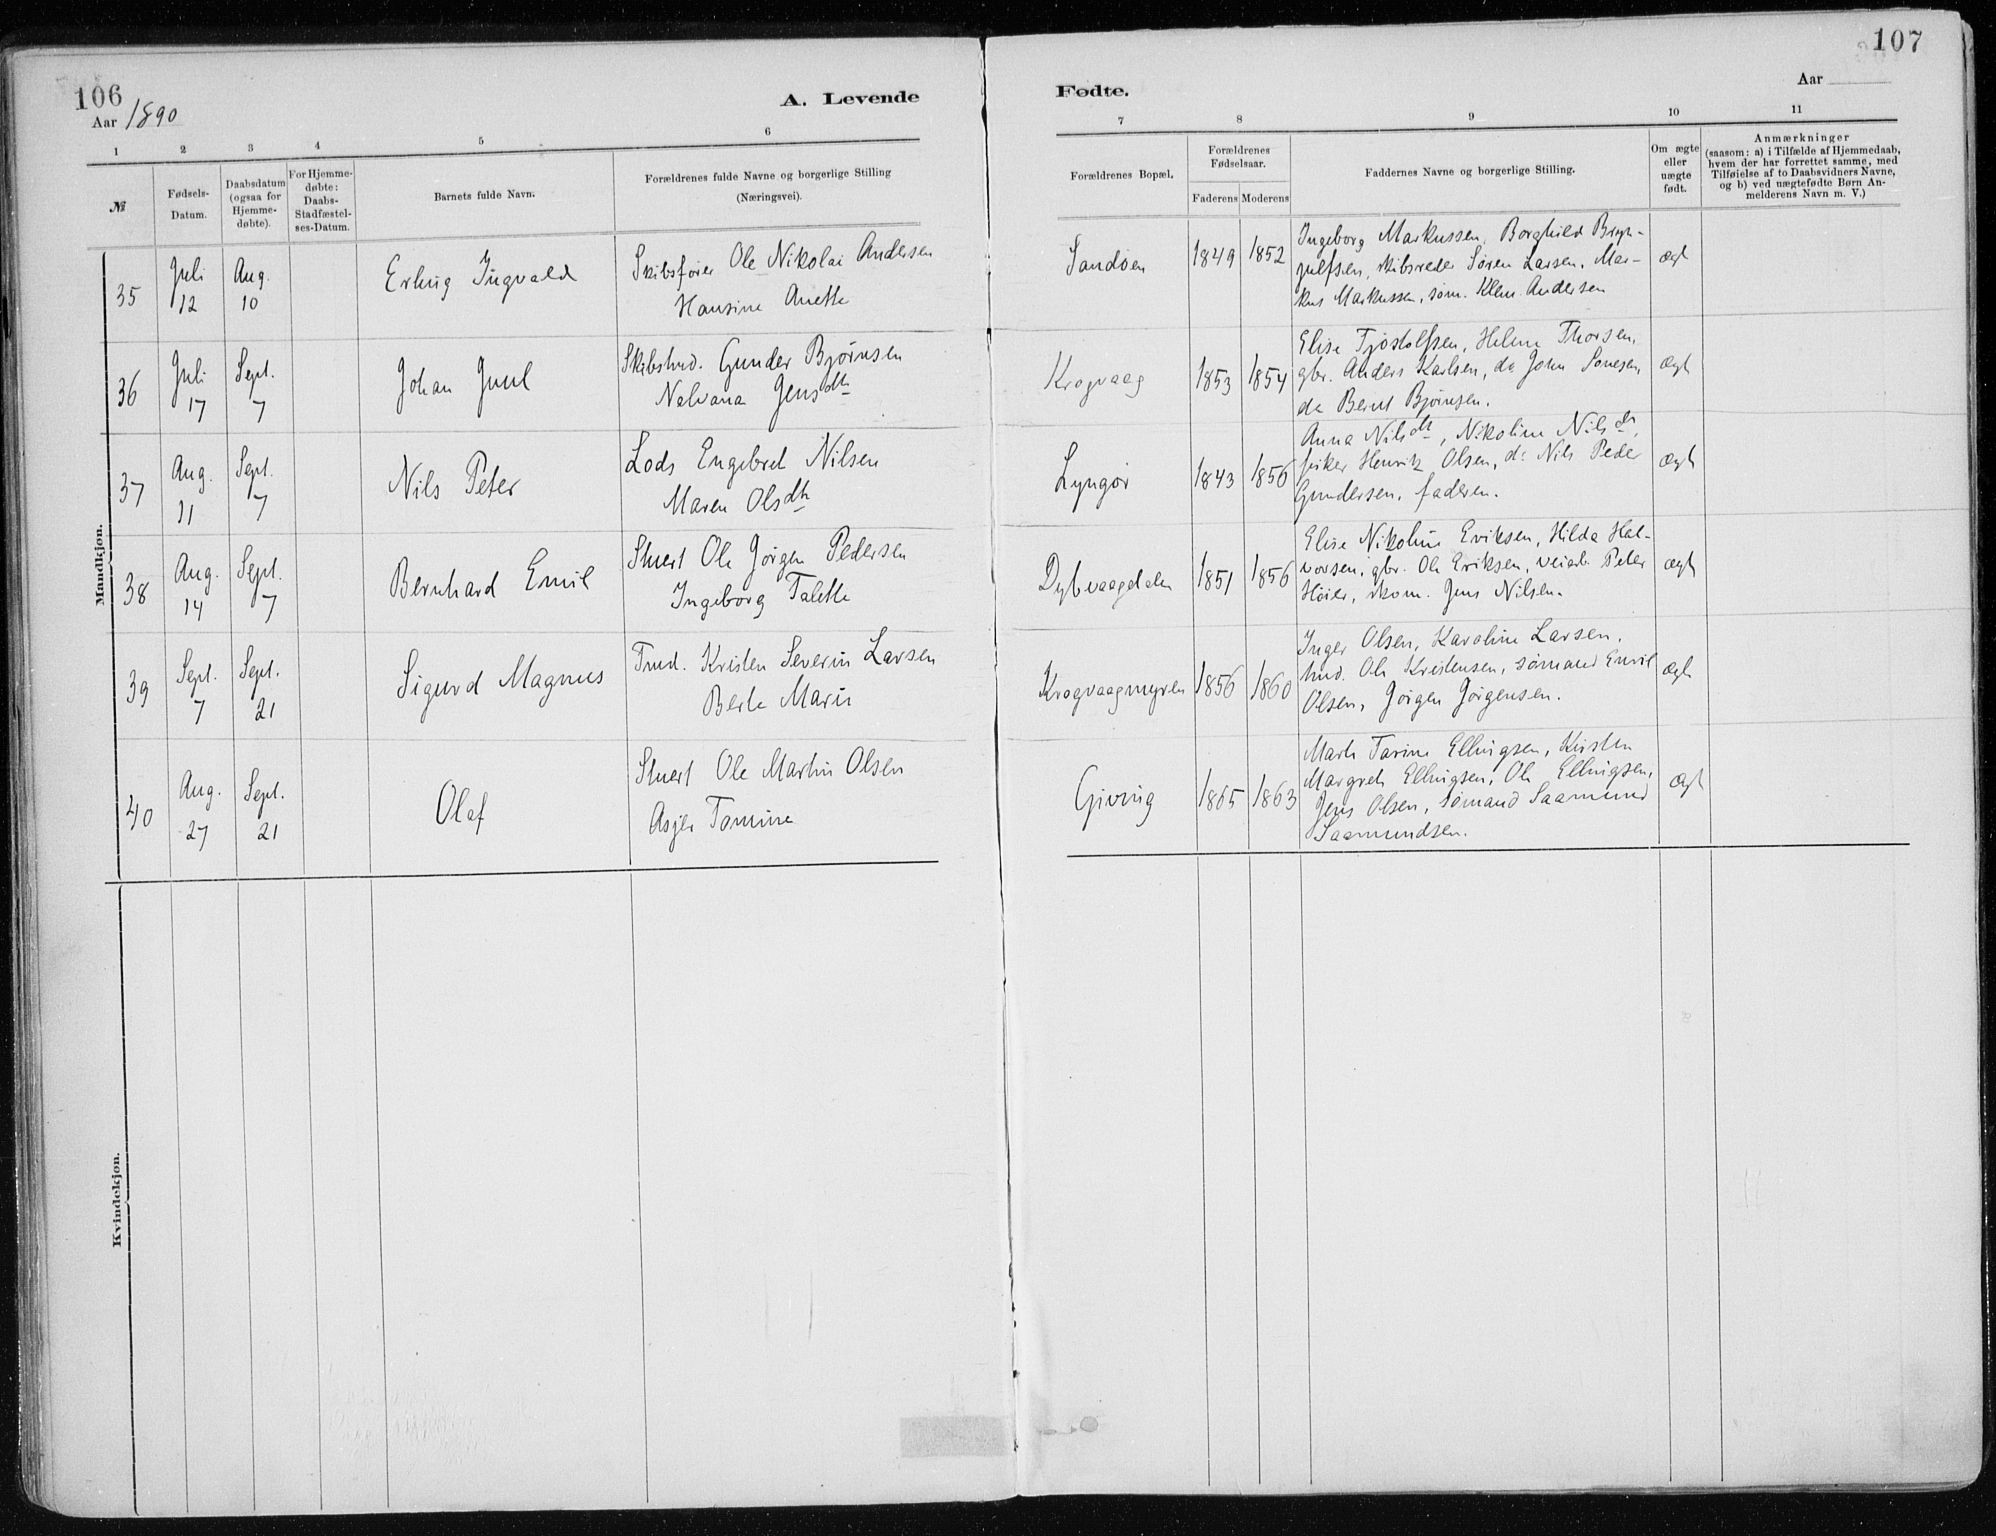 106
Aar 1890
A. Levende
1 2 3 4 5 6
№
Fødsels-
Datum.
Daabsdatum
(ogsaa for
Hjemme-
døbte).
For Hjemme-
døbte:
Daabs-
Stadfæstel-
ses-Datum.
Barnets fulde Navn.
Forældrenes fulde Navne og borgerlige Stilling
(Næringsvei).
Mandkjøn.
35 Juli 12 Aug. 10 Erling Ingvald Skibsfører Ole Nikolai Andersen
Hansine Anette
36 Juli 17 Sept. 7 Johan Juul Skibstmd. Gunder Bjørnsen
Nelvana Jensdtr
37 Aug. 11 Sept. 7 Nils Peter Lods Engebret Nilsen
Maren Olsdtr
38 Aug. 14 Sept. 7 Bernhard Emil Stuert Ole Jørgen Pedersen
Ingeborg Talette
39 Sept. 7 Sept. 21 Sigurd Magnus Tmd. Kristen Severin Larsen
Berte Marie
40 Aug. 27 Sept. 21 Olaf Stuert Ole Martin Olsen
Asjer Tomine
Kvindekjøn.
107
Aar
Fødte.
7 8 9 10 11
Forældrenes Bopæl.
Forældrenes
Fødselsaar.
Faderens Moderens
Faddernes Navne og borgerlige Stilling.
Om ægte
eller
uægte
født.
Anmærkninger
(saasom: a) i Tilfælde af Hjemmedaab,
hvem der har forrettet samme, med
Tilføielse af to Daabsvidners Navne,
og b) ved uægtefødte Børn An-
melderens Navn m. V.)
Sandøen 1849 1852 Ingeborg Markussen, Borghild Bryn-
julfsen, skibsreder Søren Larsen, Mar-
kus Markussen, søm. Klem. Andersen
ægt
Krogvaag 1853 1854 Elise Tjøstolfsen, Helene Thorsen,
gbr. Anders Karlsen, do John Tønesen,
do Bernt Bjørnsen.
ægt
Lyngør 1843 1856 Anna Nilsdtr, Nikoline Nilsdtr,
fisker Henrik Olsen, do Nils Peder
Gundersen, faderen.
ægt
Dybvaagdalen 1851 1856 Elise Nikoline Eriksen, Hilda Hal-
vorsen, gbr. Ole Eriksen, veiarb. Peter
Høier, skom. Jens Nilsen.
ægt
Krogvaagmyren 1856 1860 Inger Olsen, Karoline Larsen,
tmd. Ole Kristensen, sømand Emil
Olsen, Jørgen Jørgensen.
ægt
Giving 1865 1863 Marte Tarine Ellingsen, Kirsten
Margrete Ellingsen, Ole Ellingsen,
Jens Olsen, sømand Saamund
Saamundsen.
ægt